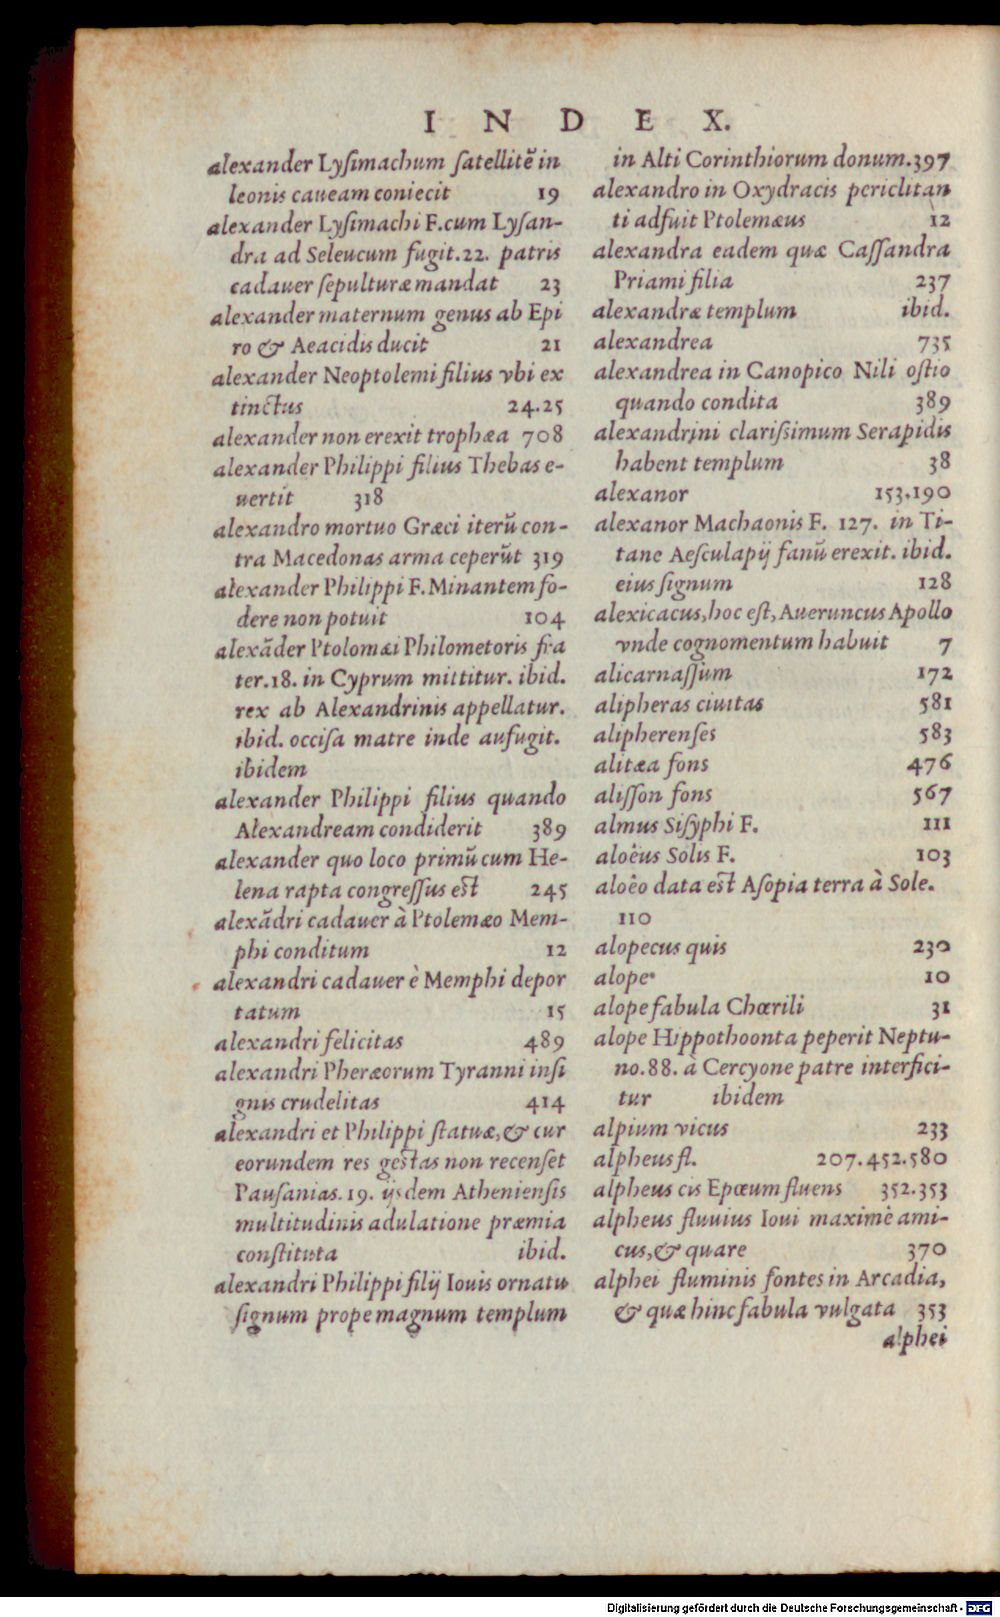 INDEX.
alexander Lyſimachum ſatellitē in
leonis caueam coniecit 19
alexander Lyſimachi F.cum Lyſan-
dra ad Seleucum fugit.22. patris
cadauer ſepulturæ mandat 23
alexander maternum genus ab Epi
ro & Aeacidis ducit 21
alexander Neoptolemi filius vbi ex
tinctus 24.25
alexander non erexit trophæa 708
alexander Philippi filius Thebas e-
uertit 318
alexandro mortuo Græci iterū con-
tra Macedonas arma ceperūt 319
alexander Philippi F. Minantem fo-
dere non potuit 104
alexāder Ptolomæi Philometoris fra
ter.18. in Cyprum mittitur. ibid.
rex ab Alexandrinis appellatur.
ibid. occiſa matre inde aufugit.
ibidem
alexander Philippi filius quando
Alexandream condiderit 389
alexander quo loco primū cum He-
lena rapta congreſſus eſt 245
alexādri cadauer à Ptolemæo Mem-
phi conditum 12
alexandri cadauer è Memphi depor
tatum 15
alexandri felicitas 489
alexandri Pheræorum Tyranni inſi
gnis crudelitas 414
alexandri et Philippi ſtatuæ,& cur
eorundem res geſtas non recenſet
Pauſanias.19. ijsdem Athenienſis
multitudinis adulatione præmia
conſtituta ibid.
alexandri Philippi filij Iouis ornatu
ſignum prope magnum templum
in Alti Corinthiorum donum.397
alexandro in Oxydracis periclitan
ti adfuit Ptolemæus 12
alexandra eadem quæ Caſſandra
Priami filia 237
alexandræ templum ibid.
alexandrea 735
alexandrea in Canopico Nili oſtio
quando condita 389
alexandrini clariſsimum Serapidis
habent templum 38
alexanor 153.190
alexanor Machaonis F. 127. in Ti-
tane Aeſculapij fanū erexit. ibid.
eius ſignum 128
alexicacus,hoc eſt,Aueruncus Apollo
vnde cognomentum habuit 7
alicarnaſſium 172
alipheras ciuitas 581
alipherenſes 583
alitæa fons 476
aliſſon fons 567
almus Siſyphi F. 111
aloëus Solis F. 103
aloëo data eſt Aſopia terra à Sole.
110
alopecus quis 230
alope 10
alope fabula Chœrili 31
alope Hippothoonta peperit Neptu-
no.88. a Cercyone patre interfici-
tur ibidem
alpium vicus 233
alpheus fl. 207.452.580
alpheus cis Epœum fluens 352.353
alpheus fluuius Ioui maximè ami-
cus,& quare 370
alphei fluminis fontes in Arcadia,
& quæ hinc fabula vulgata 353
alphei
Digitalisierung gefördert durch die Deutsche Forschungsgemeinschaft - DFG